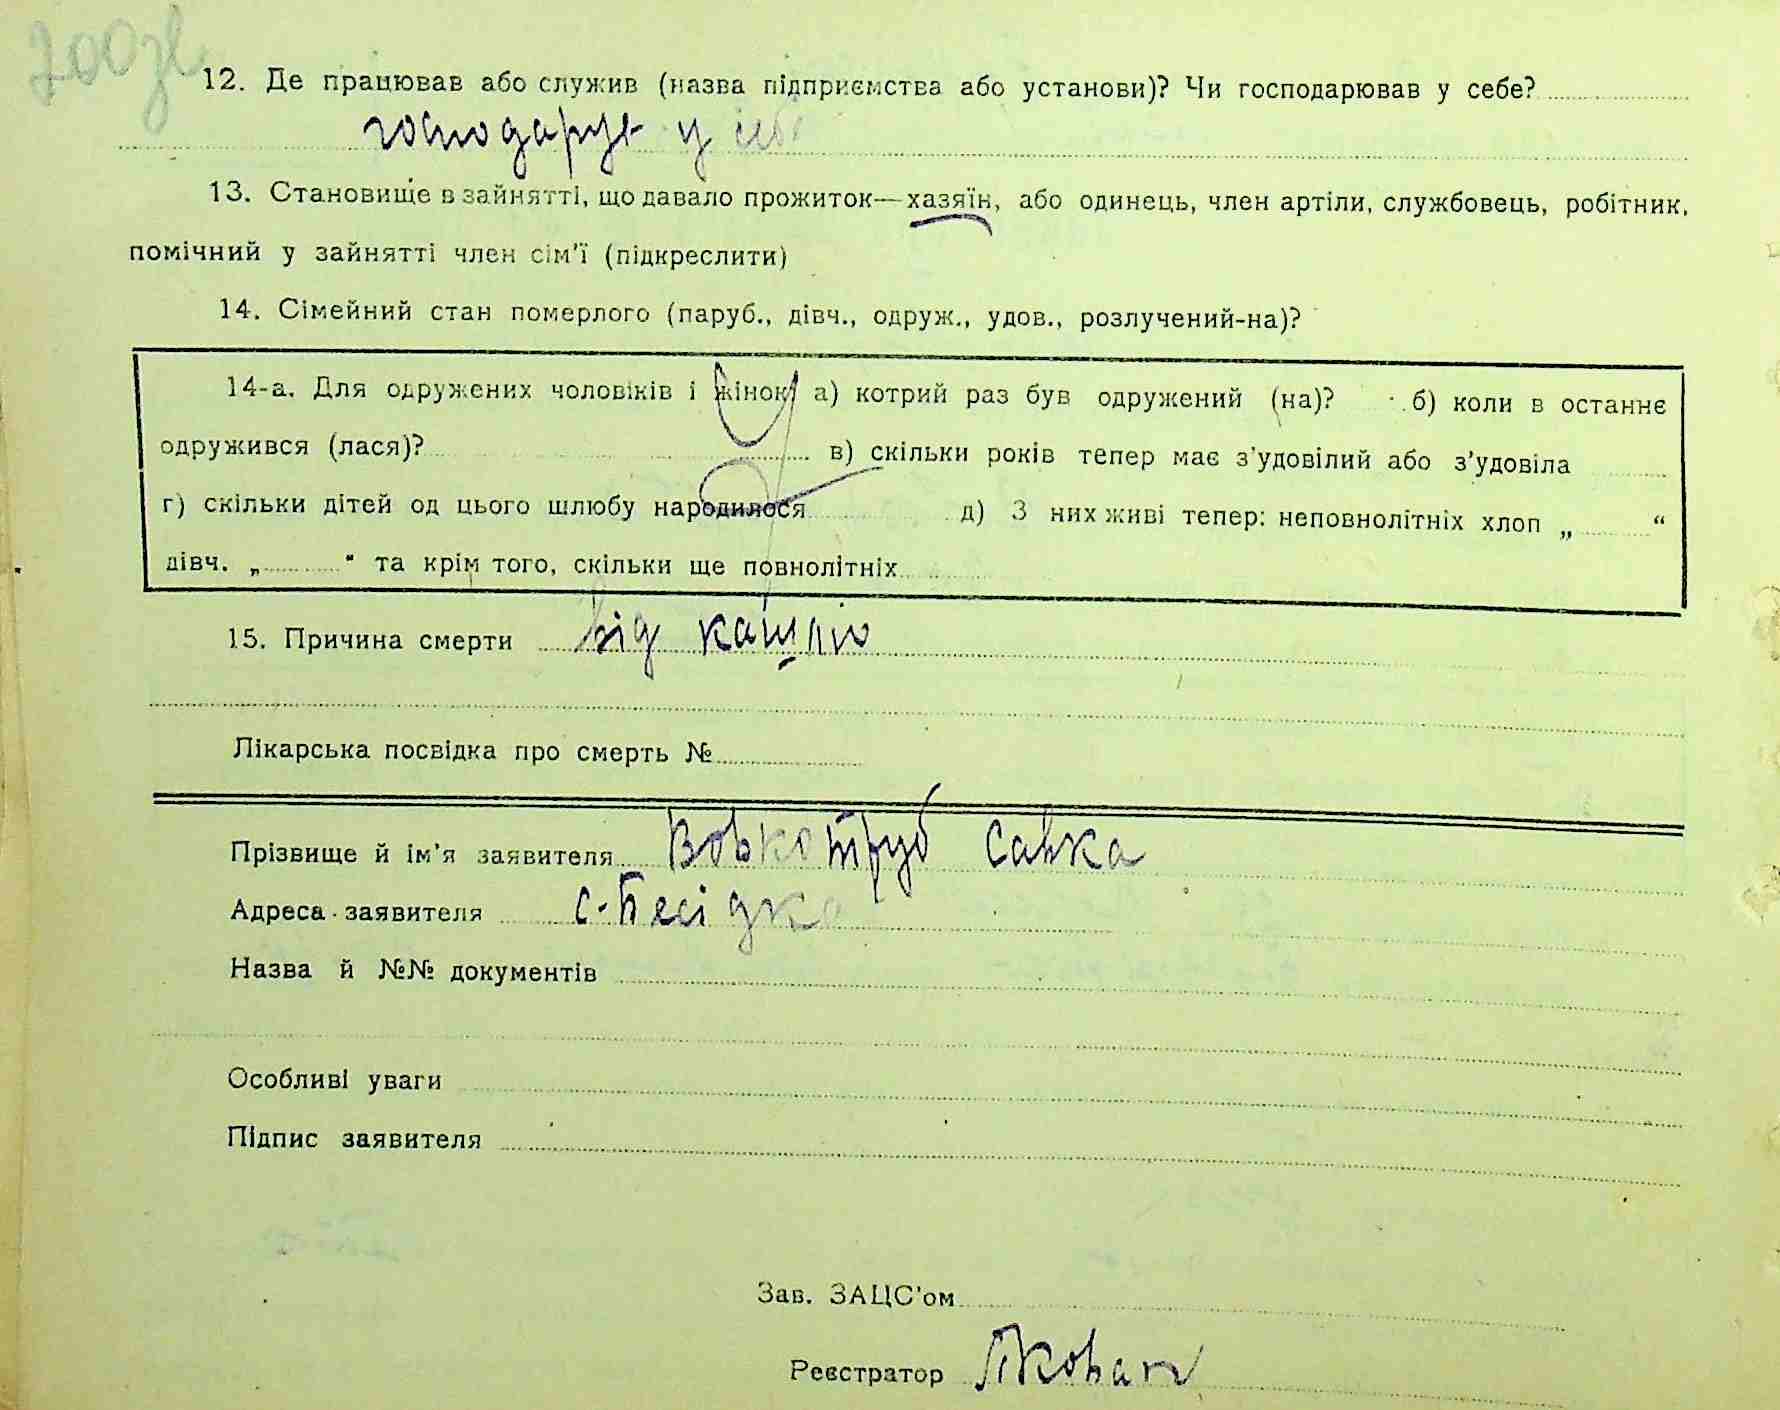 12. Де працював або служив (назва підприємства або установи)? Чи господарював у себе?
господарує у себе
13. Становище в зайнятті, що давало прожиток—хазяїн, або одинець, член артіли, службовець, робітник,
помічний у зайнятті член сім'ї (підкреслити)
14. Сімейний стан померлого (паруб., дівч., одруж., удов., розлучений-на)?
14-а. Для одружених чоловіків і жінок а) котрий раз був одружений (на)? б) коли в останнє
одружився (лася)? в) скільки років тепер має з'удовілий або з'удовіла
г) скільки дітей од цього шлюбу народилося д) З них живі тепер: неповнолітніх хлоп „ “
дівч. „ “ та крім того, скільки ще повнолітніх
15. Причина смерти від кашлю
Лікарська посвідка про смерть №
Прізвище й ім'я заявителя Вовкотруб Савка
Адреса заявителя с. Бесідка
Назва й №№ документів
Особливі уваги
Підпис заявителя
Зав. ЗАЦС'ом
Реєстратор